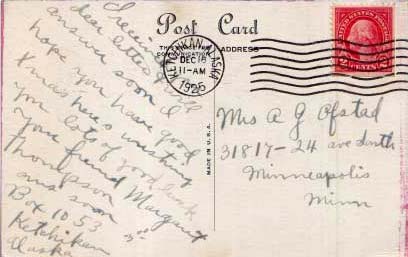 Post Card
ADDRESS
I receive
dear letter will
answer soon I
hope you have good
Xmas here's wishing
you lots of good luck
your friend Margaret
Thompson
ans soon
Box 1053
Ketchikan
Alaska
KETCHIKAN, ALASKA
DEC 18
11-AM
1926
UNITED STATES POSTAGE
2 CENTS 2
MADE IN U.S.A.
Mrs A G Ofstad
31817-24 ave South
Minneapolis
Minn